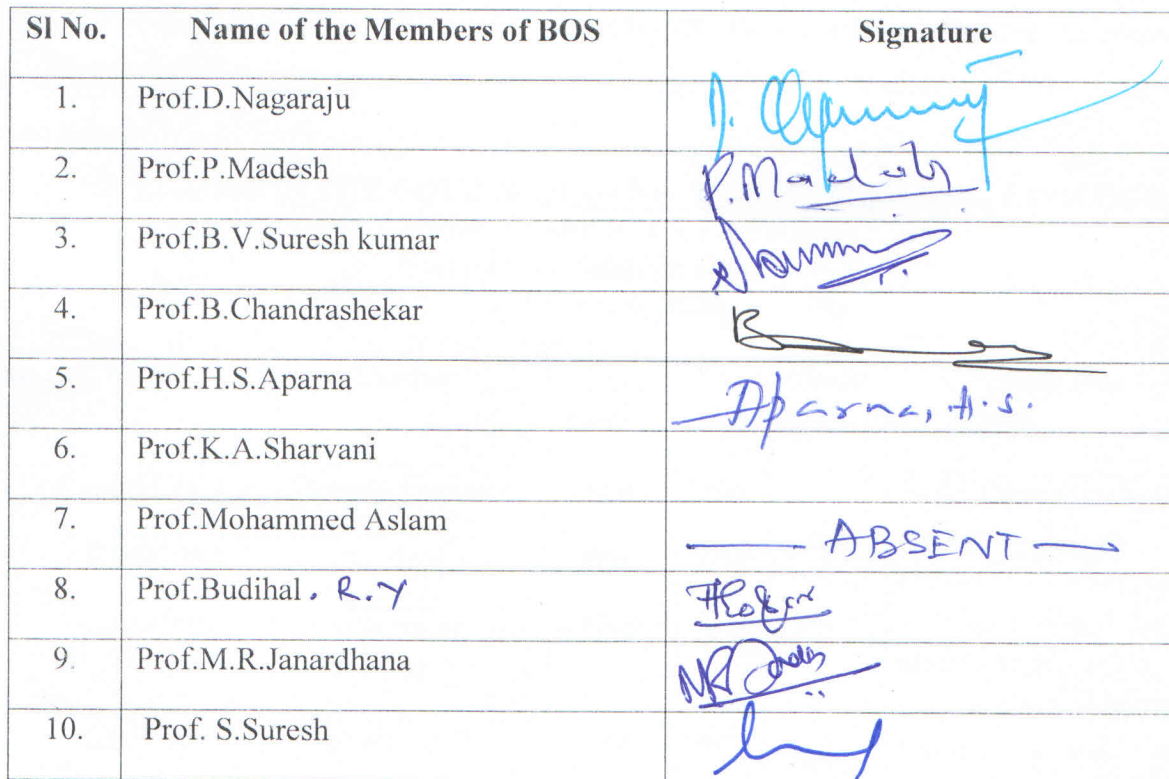 Sl No. Name of the Members of BOS Signature
1. Prof.D.Nagaraju
2. Prof.P.Madesh P.Madesh
3. Prof.B.V.Suresh kumar
4. Prof.B.Chandrashekar
5. Prof.H.S.Aparna Aparna, H.S.
6. Prof.K.A.Sharvani
7. Prof.Mohammed Aslam ABSENT
8. Prof.Budihal . R.Y
9. Prof.M.R.Janardhana
10. Prof. S.Suresh